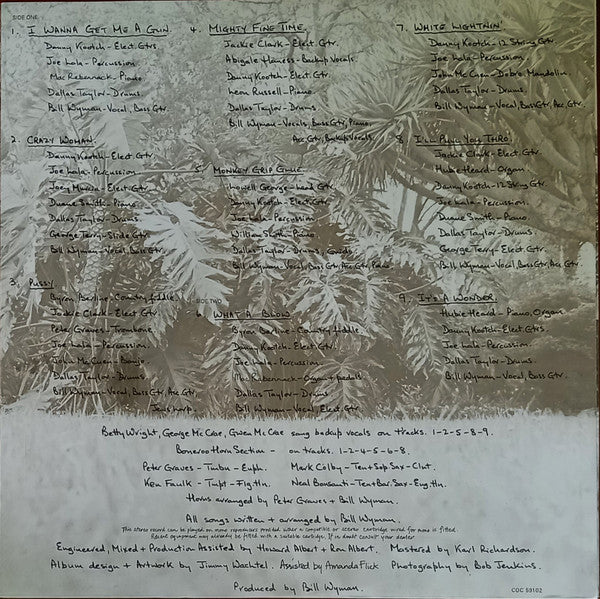 SIDE ONE
1. I WANNA GET ME A GUN.
Danny Kootch - Elect. Gtrs.
Joe Lala - Percussion.
Mac Rebennack - Piano.
Dallas Taylor - Drums
Bill Wyman - Vocal, Bass Gtr.
2. CRAZY WOMAN.
Danny Kootch - Elect. Gtr.
Joe Lala - Percussion
Joey Murcia - Elect. Gtr
Duane Smith - Piano.
Dallas Taylor - Drums.
George Terry - Slide Gtr.
Bill Wyman - Vocal, Bass Gtr.
3. PUSSY
Byron Berline - Country fiddle
Jackie Clark - Elect Gtr
Peter Graves - Trombone
Joe Lala - Percussion.
John McCuen - Banjo.
Dallas Taylor - Drums
Bill Wyman - Vocal, Bass Gtr, Acc Gtr,
Jaws harp.
4. MIGHTY FINE TIME.
Jackie Clark - Elect. Gtr.
Abigale Haness - Backup Vocals.
Danny Kootch - Elect Gtr
Leon Russell - Piano.
Dallas Taylor - Drums
Bill Wyman - Vocals, Bass Gtr, Piano,
Acc Gtr, Backup Vocals.
5. MONKEY GRIP GLUE
Lowell George - Lead Gtr
Danny Kootch - Elect. Gtr.
Joe Lala - Percussion
William Smith - Piano
Dallas Taylor - Drums,
Bill Wyman - Vocals, Bass Gtr, Acc Gtr, Piano
SIDE TWO
6. WHAT A BLOW
Byron Berline - Country fiddle.
Danny Kootch - Elect. Gtr.
Joe Lala - Percussion
Mac Rebennack - Organ + pedals
Dallas Taylor - Drums
Bill Wyman - Vocal, Elect. Gtr
7. WHITE LIGHTNIN'
Danny Kootch - 12 String Gtr.
Joe Lala - Percussion.
John McCuen - Dobro Mandolin.
Dallas Taylor - Drums.
Bill Wyman - Vocal, Bass Gtr, Acc, Gtr.
8. I'LL PULL YOU THRO.
Jackie Clark - Elect. Gtr.
Hubie Heard - Organ.
Danny Kootch - 12 String Gtr.
Joe Lala - Percussion.
Duane Smith - Piano.
Dallas Taylor - Drums
George Terry - Elect Gtr.
Bill Wyman - Vocal, Bass Gtr, Acc Gtr.
9. IT'S A WONDER.
Hubie Heard - Piano, Organ
Danny Kootch - Elect. Gtrs.
Joe Lala - Percussion.
Dallas Taylor - Drums
Bill Wyman - Vocal, Bass Gtr.
Betty Wright, George McCrae, Gwen McCrae sang backup vocals on tracks. 1-2-5-8-9.
Bonaroo Horn Section - on tracks. 1-2-4-5-6-8.
Peter Graves - Tmbn - Euph. Mark Colby - Ten + Sop Sax - Clnt.
Ken Faulk - Tmpt - Flg. Hn. Neal Bonsanti - Ten + Bar. Sax - Eng. Hn.
Horns arranged by Peter Graves + Bill Wyman.
All songs written + arranged by Bill Wyman.
This stereo record can be played on mono reproducers provided either a compatible or stereo cartridge wired for mono is fitted.
Recent equipment may already be fitted with a suitable cartridge. If in doubt consult your dealer
Engineered, Mixed + Production Assisted by Howard Albert + Ron Albert. Mastered by Karl Richardson.
Album design + Artwork by Jimmy Wachtel. Assisted by Amanda Flick Photography by Bob Jenkins.
Produced by Bill Wyman.
COC 59102